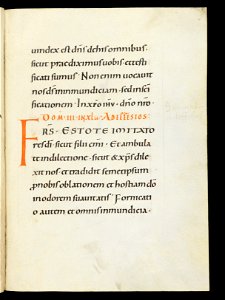 uindex est dn̄s de his omnibus.
sicut praediximus uobis et testi
ficati sumus. Non enim uocauit
nos d̄s in inmundiciam. sed in sc̄i
ficationem. In xp̄o ih̄u. dn̄o nr̄o.
DOM. III. IN XL. AD EPHESIOS.
FRS. ESTOTE IMITATO
res dī. sicut filii cmī. Et ambula
te in dilectione. sicut & xp̄s dile
xit nos. et tradidit semetipsum
pro nobis oblationem et hostiam dō
in odorem suauitatis. Fornicati
o autem et omnis inmundicia.